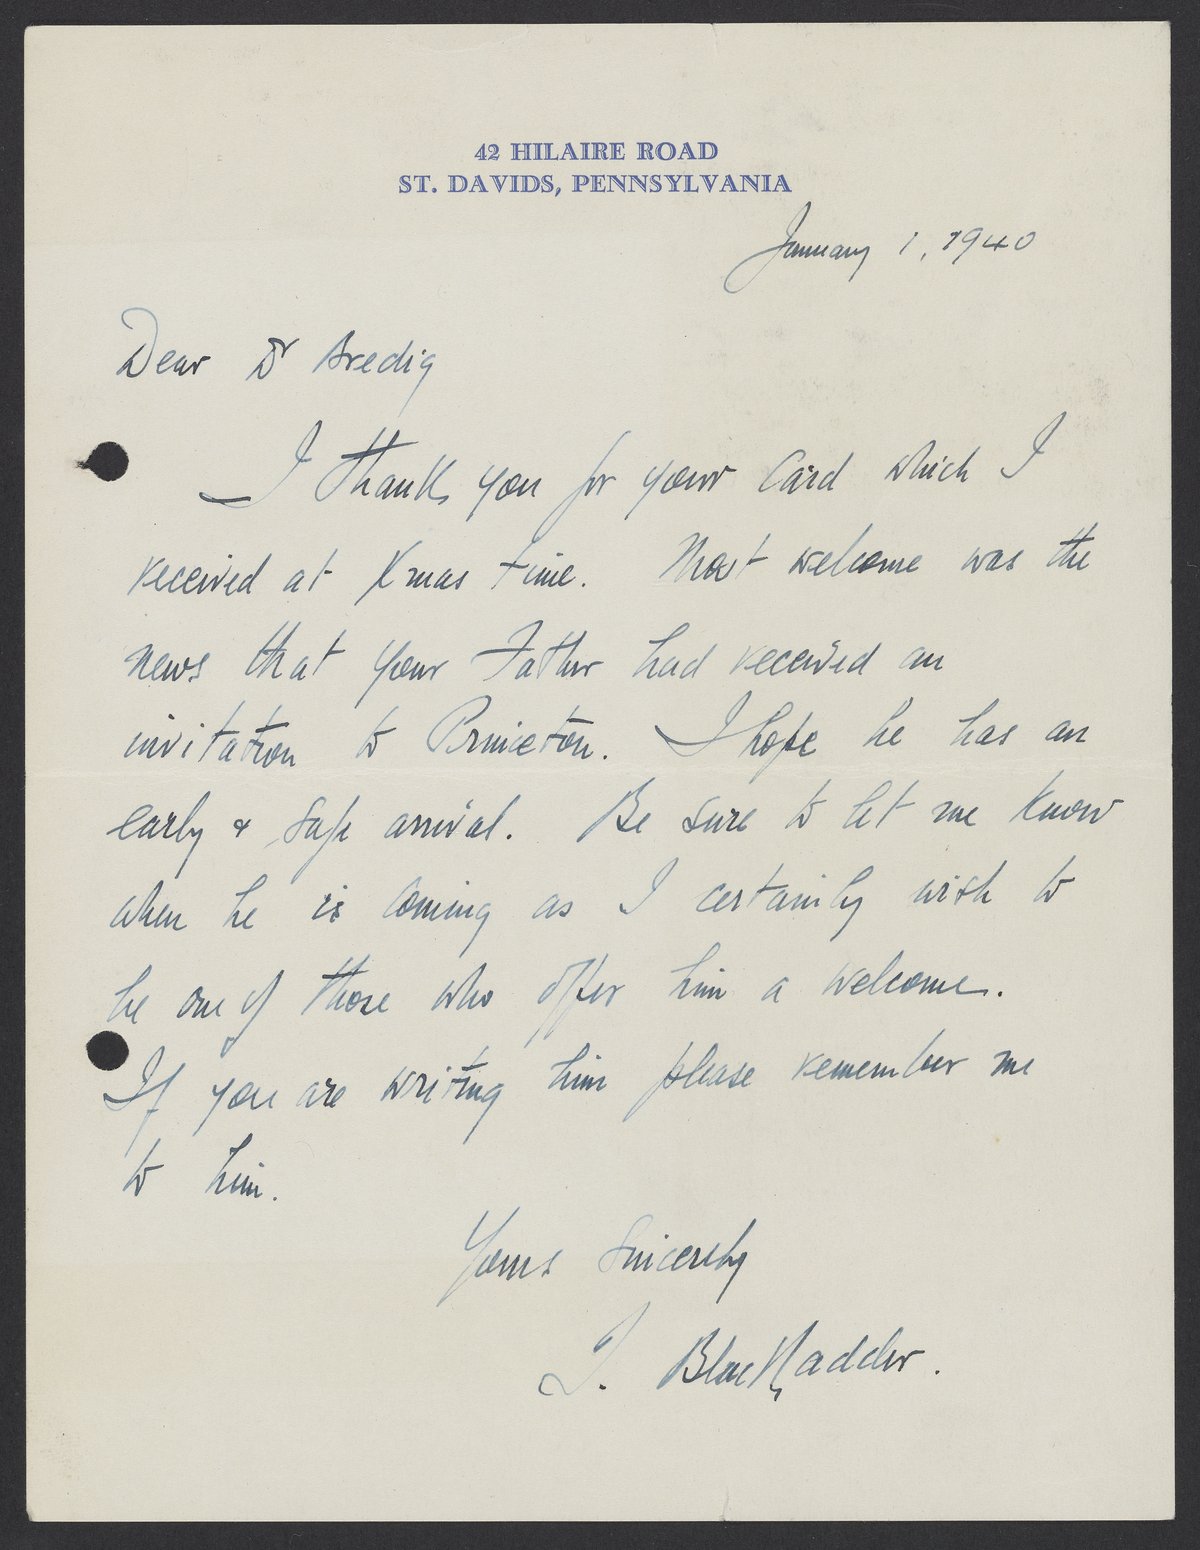 42 HILAIRE ROAD
ST. DAVIDS, PENNSYLVANIA
January 1, 1940
Dear Dr Bredig
I thank you for your Card which I
received at Xmas time. Most welcome was the
news that your Father had received an
invitation to Princeton. I hope he has an
early & safe arrival. Be sure to let me know
when he is coming as I certainly wish to
be one of those who offer him a welcome.
If you are writing him please remember me
to him.
Yours Sincerely
T. Blackadder.